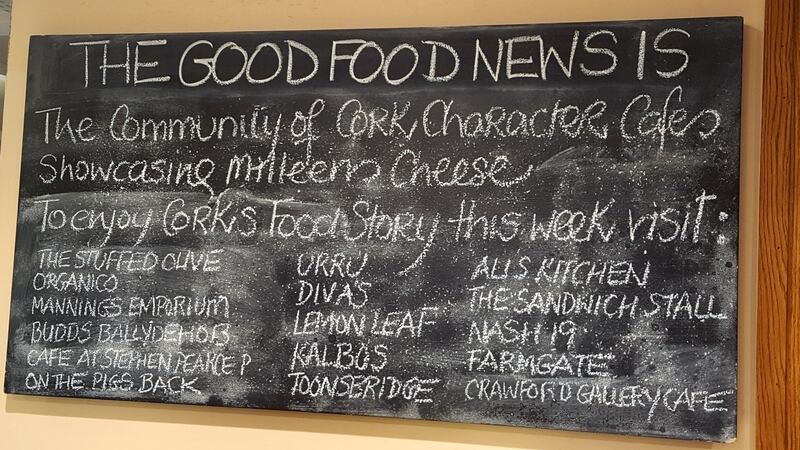 THE GOOD FOOD NEWS IS
The Community of Cork Character Cafes
Showcasing Milleens Cheese
To enjoy Cork's Food Story this week visit:
THE STUFFED OLIVE
ORGANICO
MANNINGS EMPORIUM
BUDDS BALLYDEHOB
CAFE AT STEPHEN PEARCE P
ON THE PIGS BACK
URRU
DIVA'S
LEMON LEAF
KALBOS
TOONSBRIDGE
ALI'S KITCHEN
THE SANDWICH STALL
NASH 19
FARMGATE
CRAWFORD GALLERY CAFE